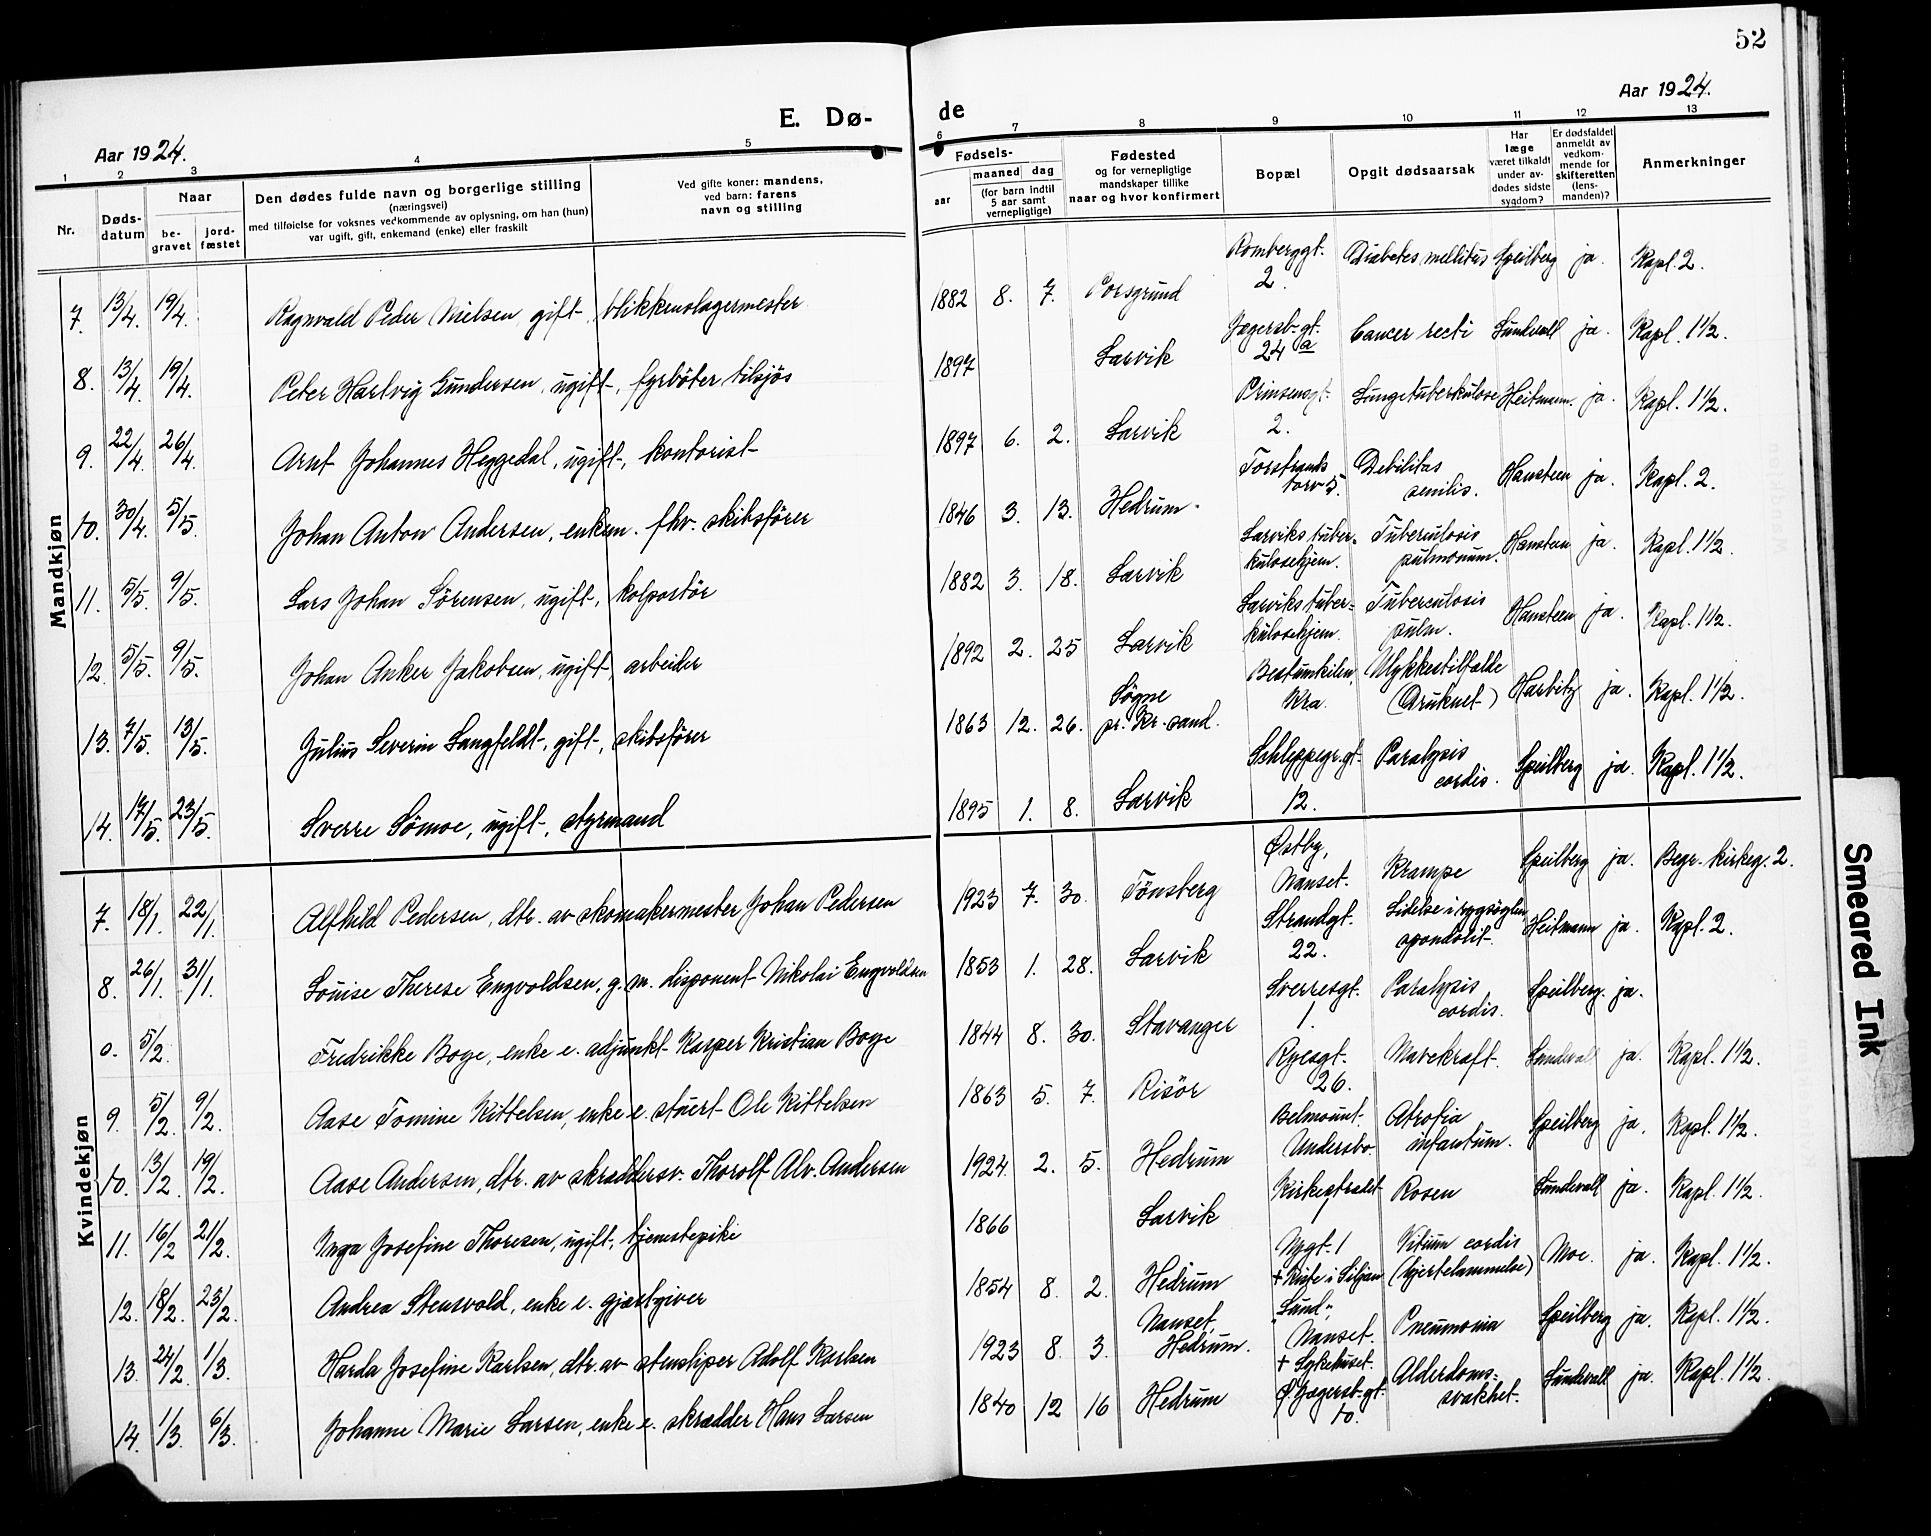 52
Aar 1924.
E. Dø- de
Aar 1924.
1 2 3 4 5 6 7 8 9 10 11 12 13
Nr.
Døds-
datum
Naar
be-
gravet
jord-
fæstet
Den dødes fulde navn og borgerlige stilling
(næringsvei)
med tilføielse for voksnes vedkommende av oplysning, om han (hun)
var ugift, gift, enkemand (enke) eller fraskilt
Ved gifte koner: mandens,
ved barn: farens
navn og stilling
Fødsels-
aar
maaned dag
(for barn indtil
5 aar samt
vernepligtige)
Fødested
og for vernepligtige
mandskaper tillike
naar og hvor konfirmert
Bopæl
Opgit dødsaarsak
Har
læge
været tilkaldt
under av-
dødes sidste
sygdom?
Er dødsfaldet
anmeldt av
vedkom-
mende for
skifteretten
(lens-
manden)?
Anmerkninger
Mandkjøn
7. 13/4. 19/4. Ragnvald Peder Nielsen, gift, blikkenslagermester 1882 8. 7. Porsgrund Romberggt. 2. Diabetes mellitus Speilberg ja. Kapl. 2.
8. 13/4. 19/4. Peter Hartvig Gundersen, ugift, fyrbøter tilsjøs 1897 Larvik Jegersb-gt. 24 a Cancer recti Sundvall ja. Kapl. 1 1/2.
9. 22/4. 26/4. Arnt Johannes Heggedal, ugift, kontorist 1897 6. 2. Larvik Prinsensgt. 2. Lungetuberkulose Heitmann. ja. Kapl. 1 1/2.
10. 30/4. 5/5. Johan Anton Andersen, enkem. fhv. skibsfører 1846 3. 13. Hedrum. Torstrands torv 5. Debilitas senilis. Hansteen ja. Kapl. 2.
11. 5/5. 9/5. Lars Johan Sörensen, ugift, kolportör 1882 3. 18. Larvik Larviks tuber- kulosehjem. Tuberculosis pulmonum. Hansteen ja. Kapl. 1 1/2.
12. 5/5. 9/5. Johan Anker Jakobsen, ugift, arbeider 1892 2. 25 Larvik Larviks tuber- kulosehjem. Tuberculosis pulm. Hansteen ja. Kapl. 1 1/2.
13. 7/5. 13/5. Julius Severin Langfeldt, gift, skibsfører 1863 12. 26. Søgne pr. Kr.sand. Bestumkilen, Kra. Ulykkestilfælde (Druknet) Harbitz ja. Kapl. 1 1/2.
14. 17/5. 23/5. Sverre Sömoe, ugift, styrmand 1895 1. 8. Larvik Schleppegr.gt. 12. Paralysis cordis. Speilberg ja. Kapl. 1 1/2.
Kvindekjøn
7. 18/1. 22/1. Alfhild Pedersen, dtr. av skomakermester Johan Pedersen 1923 7. 30. Tønsberg Østby, Nanset. Krampe Speilberg ja. Begr. kirkeg. 2.
8. 26/1. 31/1. Louise Therese Engvoldsen, g. m. disponent Nikolai Engvoldsen 1853 1. 28. Larvik Strandgt. 22. Lidelse i rygsøylen, spondolit. Heitmann ja. Kapl. 2.
0. 5/2. Fredrikke Boge, enke e. adjunkt Kasper Kristian Boge 1844 8. 30. Stavanger Sverresgt. 1. Paralysis cordis. Speilberg. ja.
9. 5/2. 9/2. Aase Tomine Kittelsen, enke e. stuert Ole Kittelsen 1863 5. 7. Risör Ryesgt. 26. Mavekræft. Sundvall ja. Kapl. 1 1/2.
10. 13/2. 19/2. Aase Andersen, dtr. av skræddersv. Thorolf Alv. Andersen 1924 2. 5. Hedrum Belmount. Undersbo Atrofia infantum. Speilberg ja. Kapl. 1 1/2.
11. 16/2 21/2. Inga Josefine Thoresen, ugift, tjenestepike 1866 Larvik Kirkestrædet Rosen Sundvall ja. Kapl. 1 1/2.
12. 18/2. 23/2. Andrea Stensvold, enke e. gjæstgiver 1854 8. 2. Hedrum Nygt. 1 + i Siljan Vitium cordis (hjertelammelse) Moe. ja. Kapl. 1 1/2.
13. 24/2. 1/3. Harda Josefine Karlsen, dtr. av stensliper Adolf Karlsen 1923 8. 3. Nanset, Hedrum. "Lund", Nanset. Pneumonia Speilberg ja. Kapl. 1 1/2.
14. 1/3. 6/3. Johanne Marie Larsen, enke e. skrædder Hans Larsen 1840 12 16 Hedrum + Sykehuset. Ø Jegersb-gt. 10. Alderdoms- svakhet. Sundvall ja. Kapl. 1 1/2.
Smeared Ink